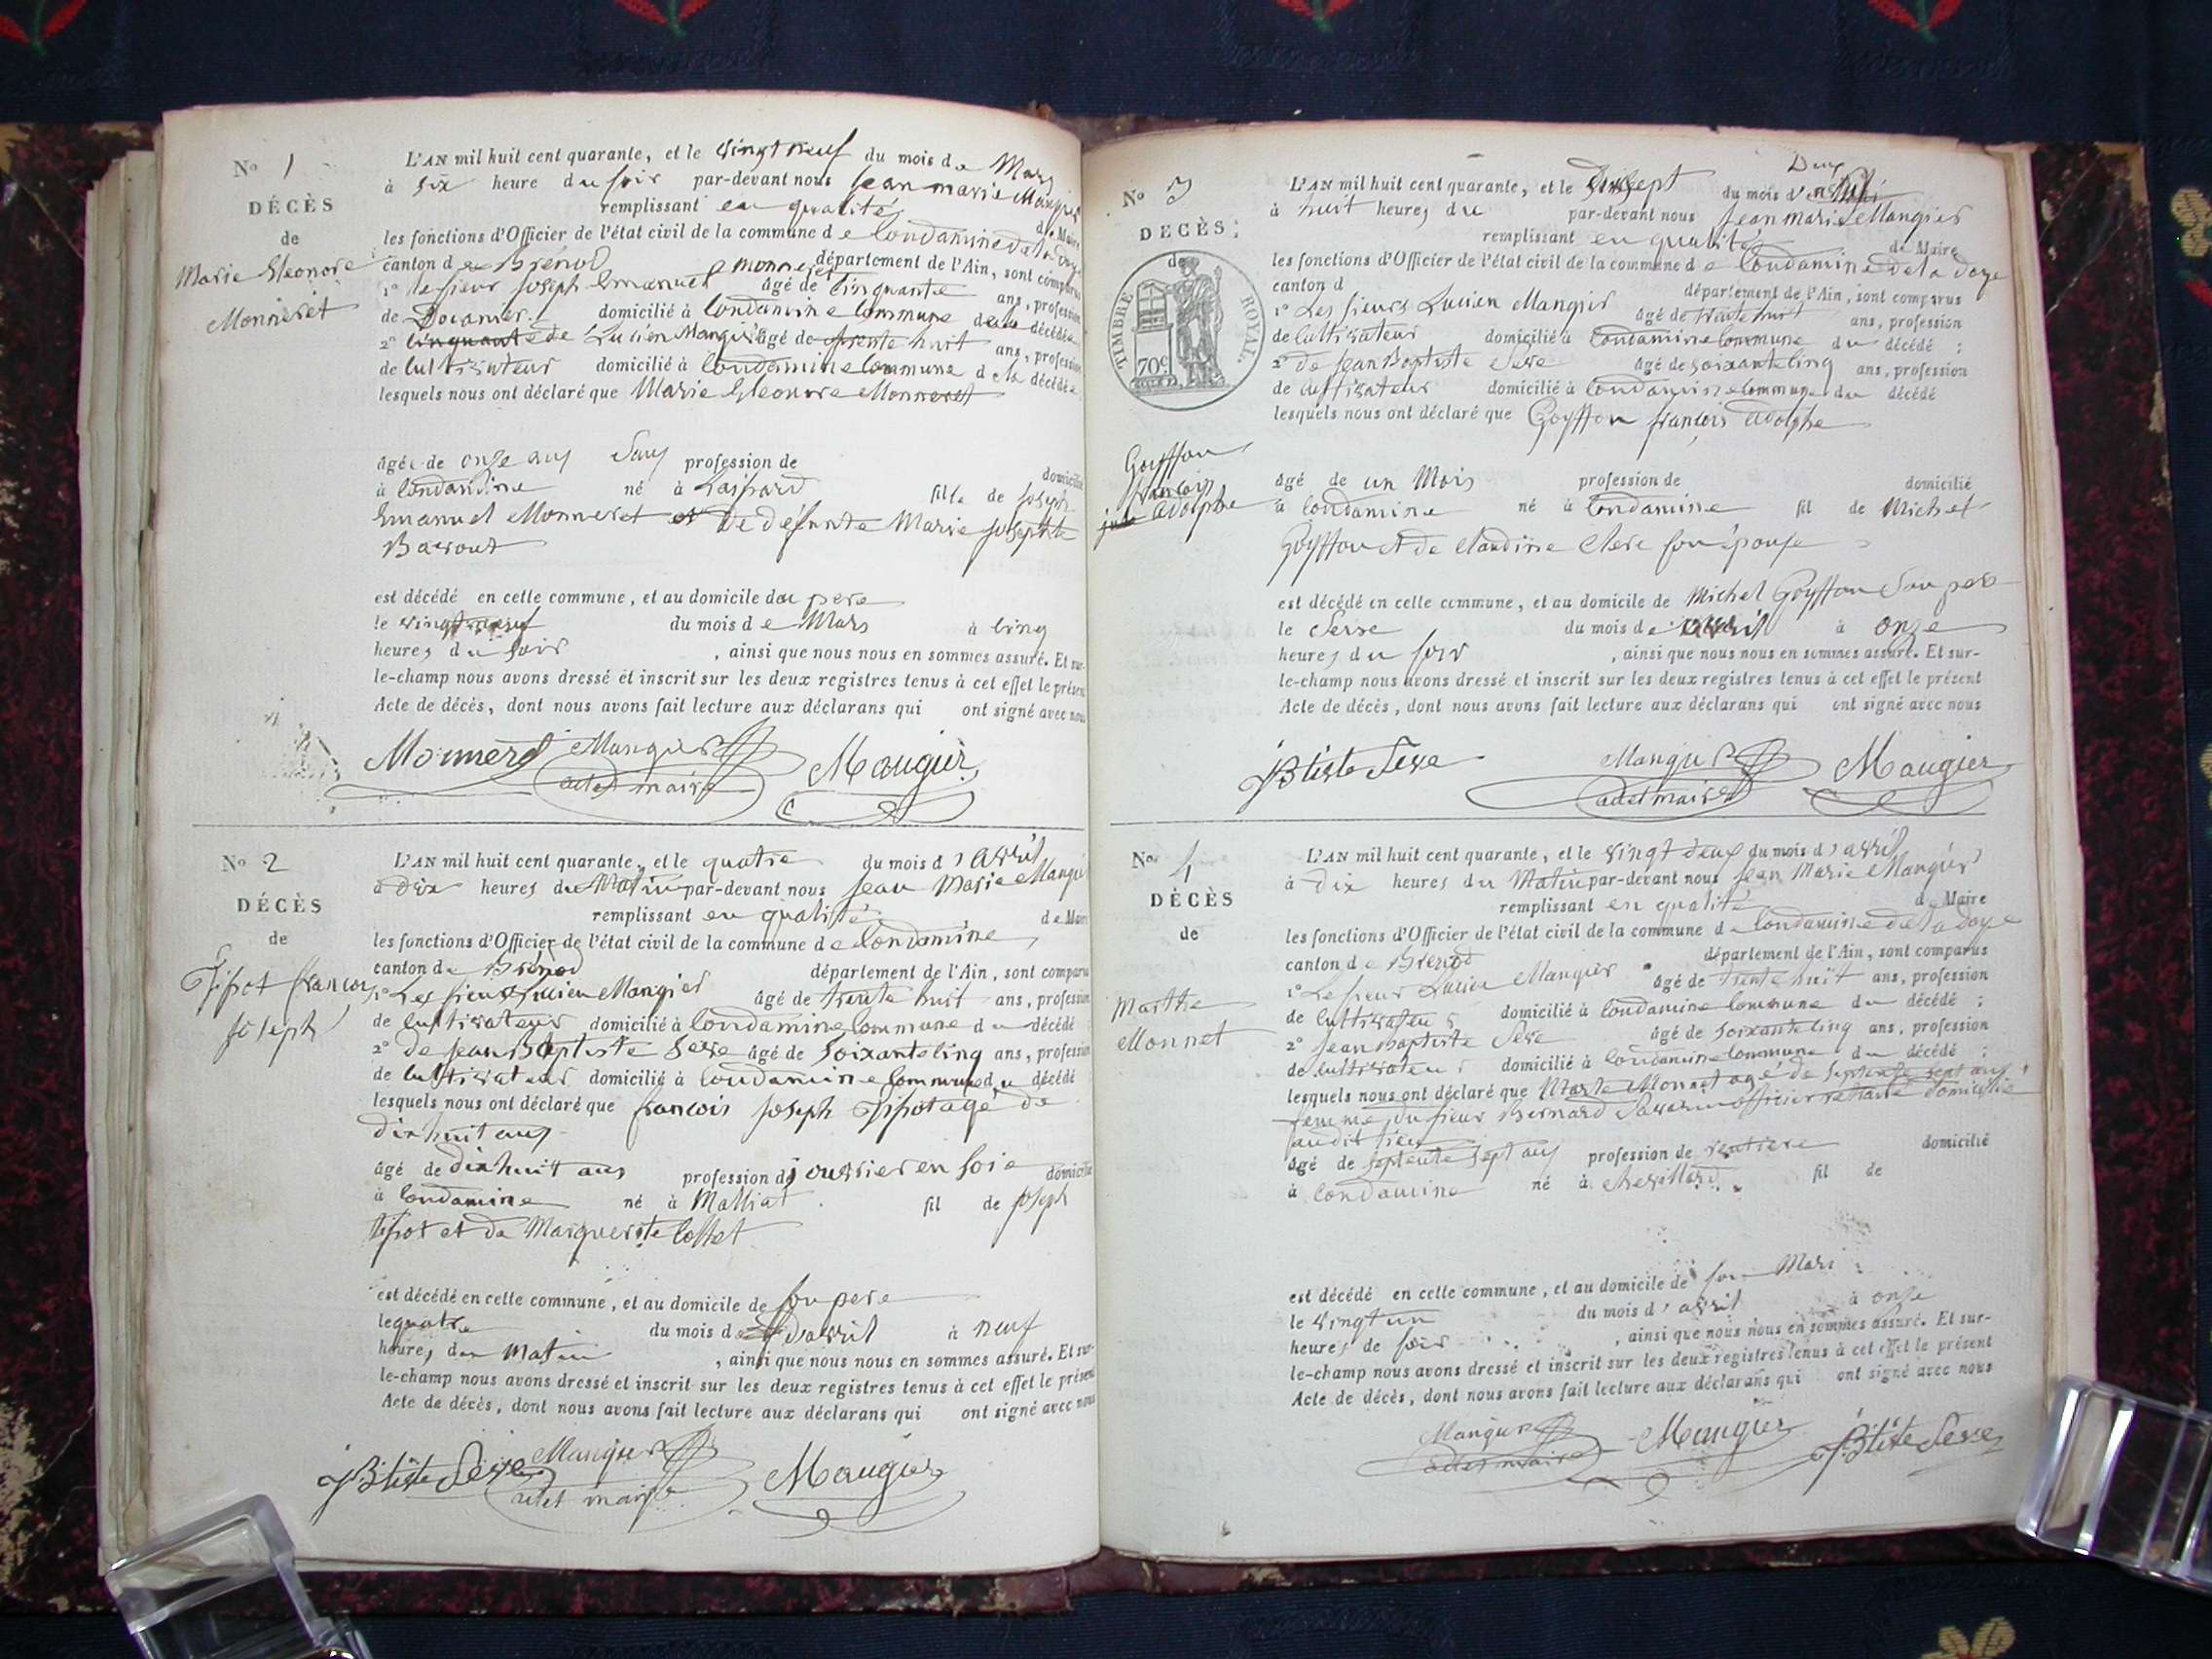 No 1
DÉCÈS
de
Marie Eleonore
Monneret
L'AN mil huit cent quarante, et le vingt neuf du mois de Mars
à six heure du soir par-devant nous Jean marie Mangier
remplissant en qualité de Maire
les fonctions d'Officier de l'état civil de la commune de Condamine de la doye
canton de Brenod département de l'Ain, sont comparus
1° le sieur Joseph Emanuel Monneret âgé de cinquante ans, profession
de Douanier domicilié à Condamine Commune de la décédée
2° de Lucien Mangier âgé de trente huit ans, profession
de Cultivateur domicilié à Condamine Commune de la décédée
lesquels nous ont déclaré que Marie Eleonore Monneret
âgée de onze ans Sans profession de domicilié
à Condamine né à fille de Joseph
Emanuel Monneret et de défunte Marie Josephte
est décédé en cette commune, et au domicile du pere
le vingt neuf du mois de Mars à Cinq
heures du soir , ainsi que nous nous en sommes assuré. Et sur-
le-champ nous avons dressé et inscrit sur les deux registres tenus à cet effet le présent
Acte de décès, dont nous avons fait lecture aux déclarans qui ont signé avec nous
Monneret Mangier Maugier
adet maire
No 2
DÉCÈS
de
Tifot francois
Joseph
L'AN mil huit cent quarante, et le quatre du mois d'avril
à dix heures du Matin par-devant nous Jean Marie Mangier
remplissant en qualité de Maire
les fonctions d'Officier de l'état civil de la commune de Condamine
canton de Brénod département de l'Ain, sont comparus
1° Les sieurs Lucien Mangier âgé de trente huit ans, profession
de Cultivateur domicilié à Condamine Commune du décédé
2° de Jean Baptiste Serve âgé de Soixante Cinq ans, profession
de Cultivateur domicilié à Condamine Commune du décédé
lesquels nous ont déclaré que francois Joseph Tifot agé de
dix huit ans
âgé de dix huit ans profession d'ouvrier en soie domicilié
à Condamine né à Malliat fil de Joseph
Tifot et de Marguerite Collet
est décédé en cette commune, et au domicile de son pere
le quatre du mois d'avril à neuf
heures du Matin , ainsi que nous nous en sommes assuré. Et sur-
le-champ nous avons dressé et inscrit sur les deux registres tenus à cet effet le présent
Acte de décès, dont nous avons fait lecture aux déclarans qui ont signé avec nous
JBtiste Serve Mangier Maugier
adet maire
No 3
DÉCÈS
de
TIMBRE ROYAL.
70c
Goyffon
francois
adolphe
L'AN mil huit cent quarante, et le dix sept du mois d'avril
à huit heures du par-devant nous Jean marie Mangier
remplissant en qualité de Maire
les fonctions d'Officier de l'état civil de la commune de Condamine de la doye
canton d département de l'Ain, sont comparus
1° Les sieurs Lucien Mangier âgé de trente huit ans, profession
de Cultivateur domicilié à Condamine Commune du décédé ;
2° de Jean Baptiste Serve âgé de soixante Cinq ans, profession
de Cultivateur domicilié à Condamine Commune du décédé
lesquels nous ont déclaré que Goyffon francois adolphe
âgé de un Mois profession de domicilié
à Condamine né à Condamine fil de Michel
Goyffon et de Claudine Clerc son épouse
est décédé en cette commune, et au domicile de Michel Goyffon Son pere
le Seise du mois de avril à onze
heures du soir , ainsi que nous nous en sommes assuré. Et sur-
le-champ nous avons dressé et inscrit sur les deux registres tenus à cet effet le présent
Acte de décès, dont nous avons fait lecture aux déclarans qui ont signé avec nous
JBtiste Serve Mangier Maugier
adet maire
No 4
DÉCÈS
de
Marthe
Monnet
L'AN mil huit cent quarante, et le vingt deux du mois d'avril
à dix heures du Matin par-devant nous Jean Marie Mangier
remplissant en qualité de Maire
les fonctions d'Officier de l'état civil de la commune de Condamine de la doye
canton de Brenod département de l'Ain, sont comparus
1° Le sieur Lucien Mangier âgé de trente huit ans, profession
de Cultivateur domicilié à Condamine Commune du décédé ;
2° Jean Baptiste Serve âgé de soixante Cinq ans, profession
de Cultivateur domicilié à Condamine Commune du décédé ;
lesquels nous ont déclaré que Marte Monnet agé de septente sept ans
femme du sieur Bernard Savarin officier retraité domicilié
audit lieu
âgé de septente sept ans profession de rentiere domicilié
à Condamine né à Chevillard fil de
est décédé en cette commune, et au domicile de son Mari
le vingt un du mois d'avril à onze
heures de soir , ainsi que nous nous en sommes assuré. Et sur-
le-champ nous avons dressé et inscrit sur les deux registres tenus à cet effet le présent
Acte de décès, dont nous avons fait lecture aux déclarans qui ont signé avec nous
Mangier Maugier JBtiste Serve
adet maire